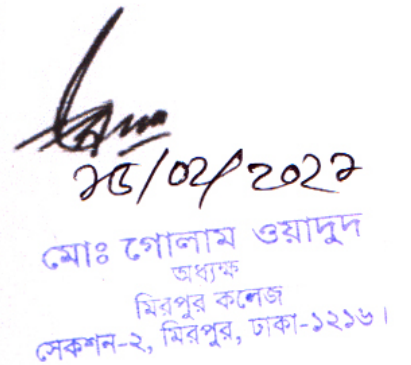 ১৫/০২/২০২১
মোঃ গোলাম ওয়াদুদ
অধ্যক্ষ
মিরপুর কলেজ
সেকশন-২, মিরপুর, ঢাকা-১২১৬।